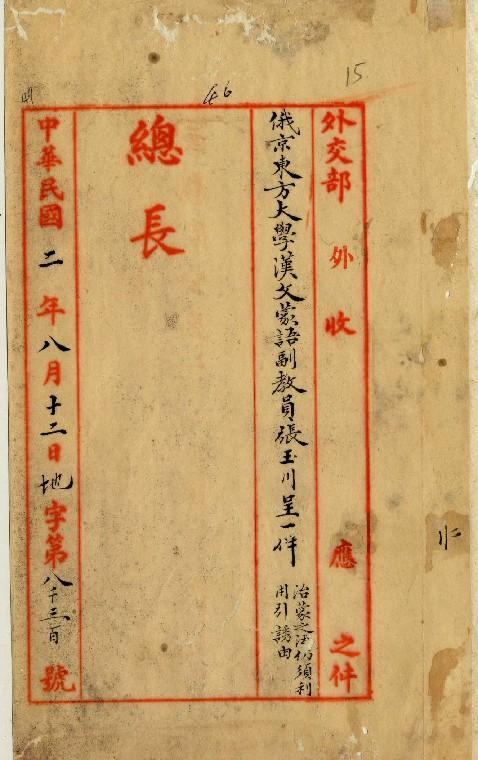 15
46
外交部 外收 應 之件
俄京東方大學漢文蒙語副教員張玉川呈一件
治蒙之法仍須利
用引誘由
總長
中華民國二年八月十二日地字第八千三百號